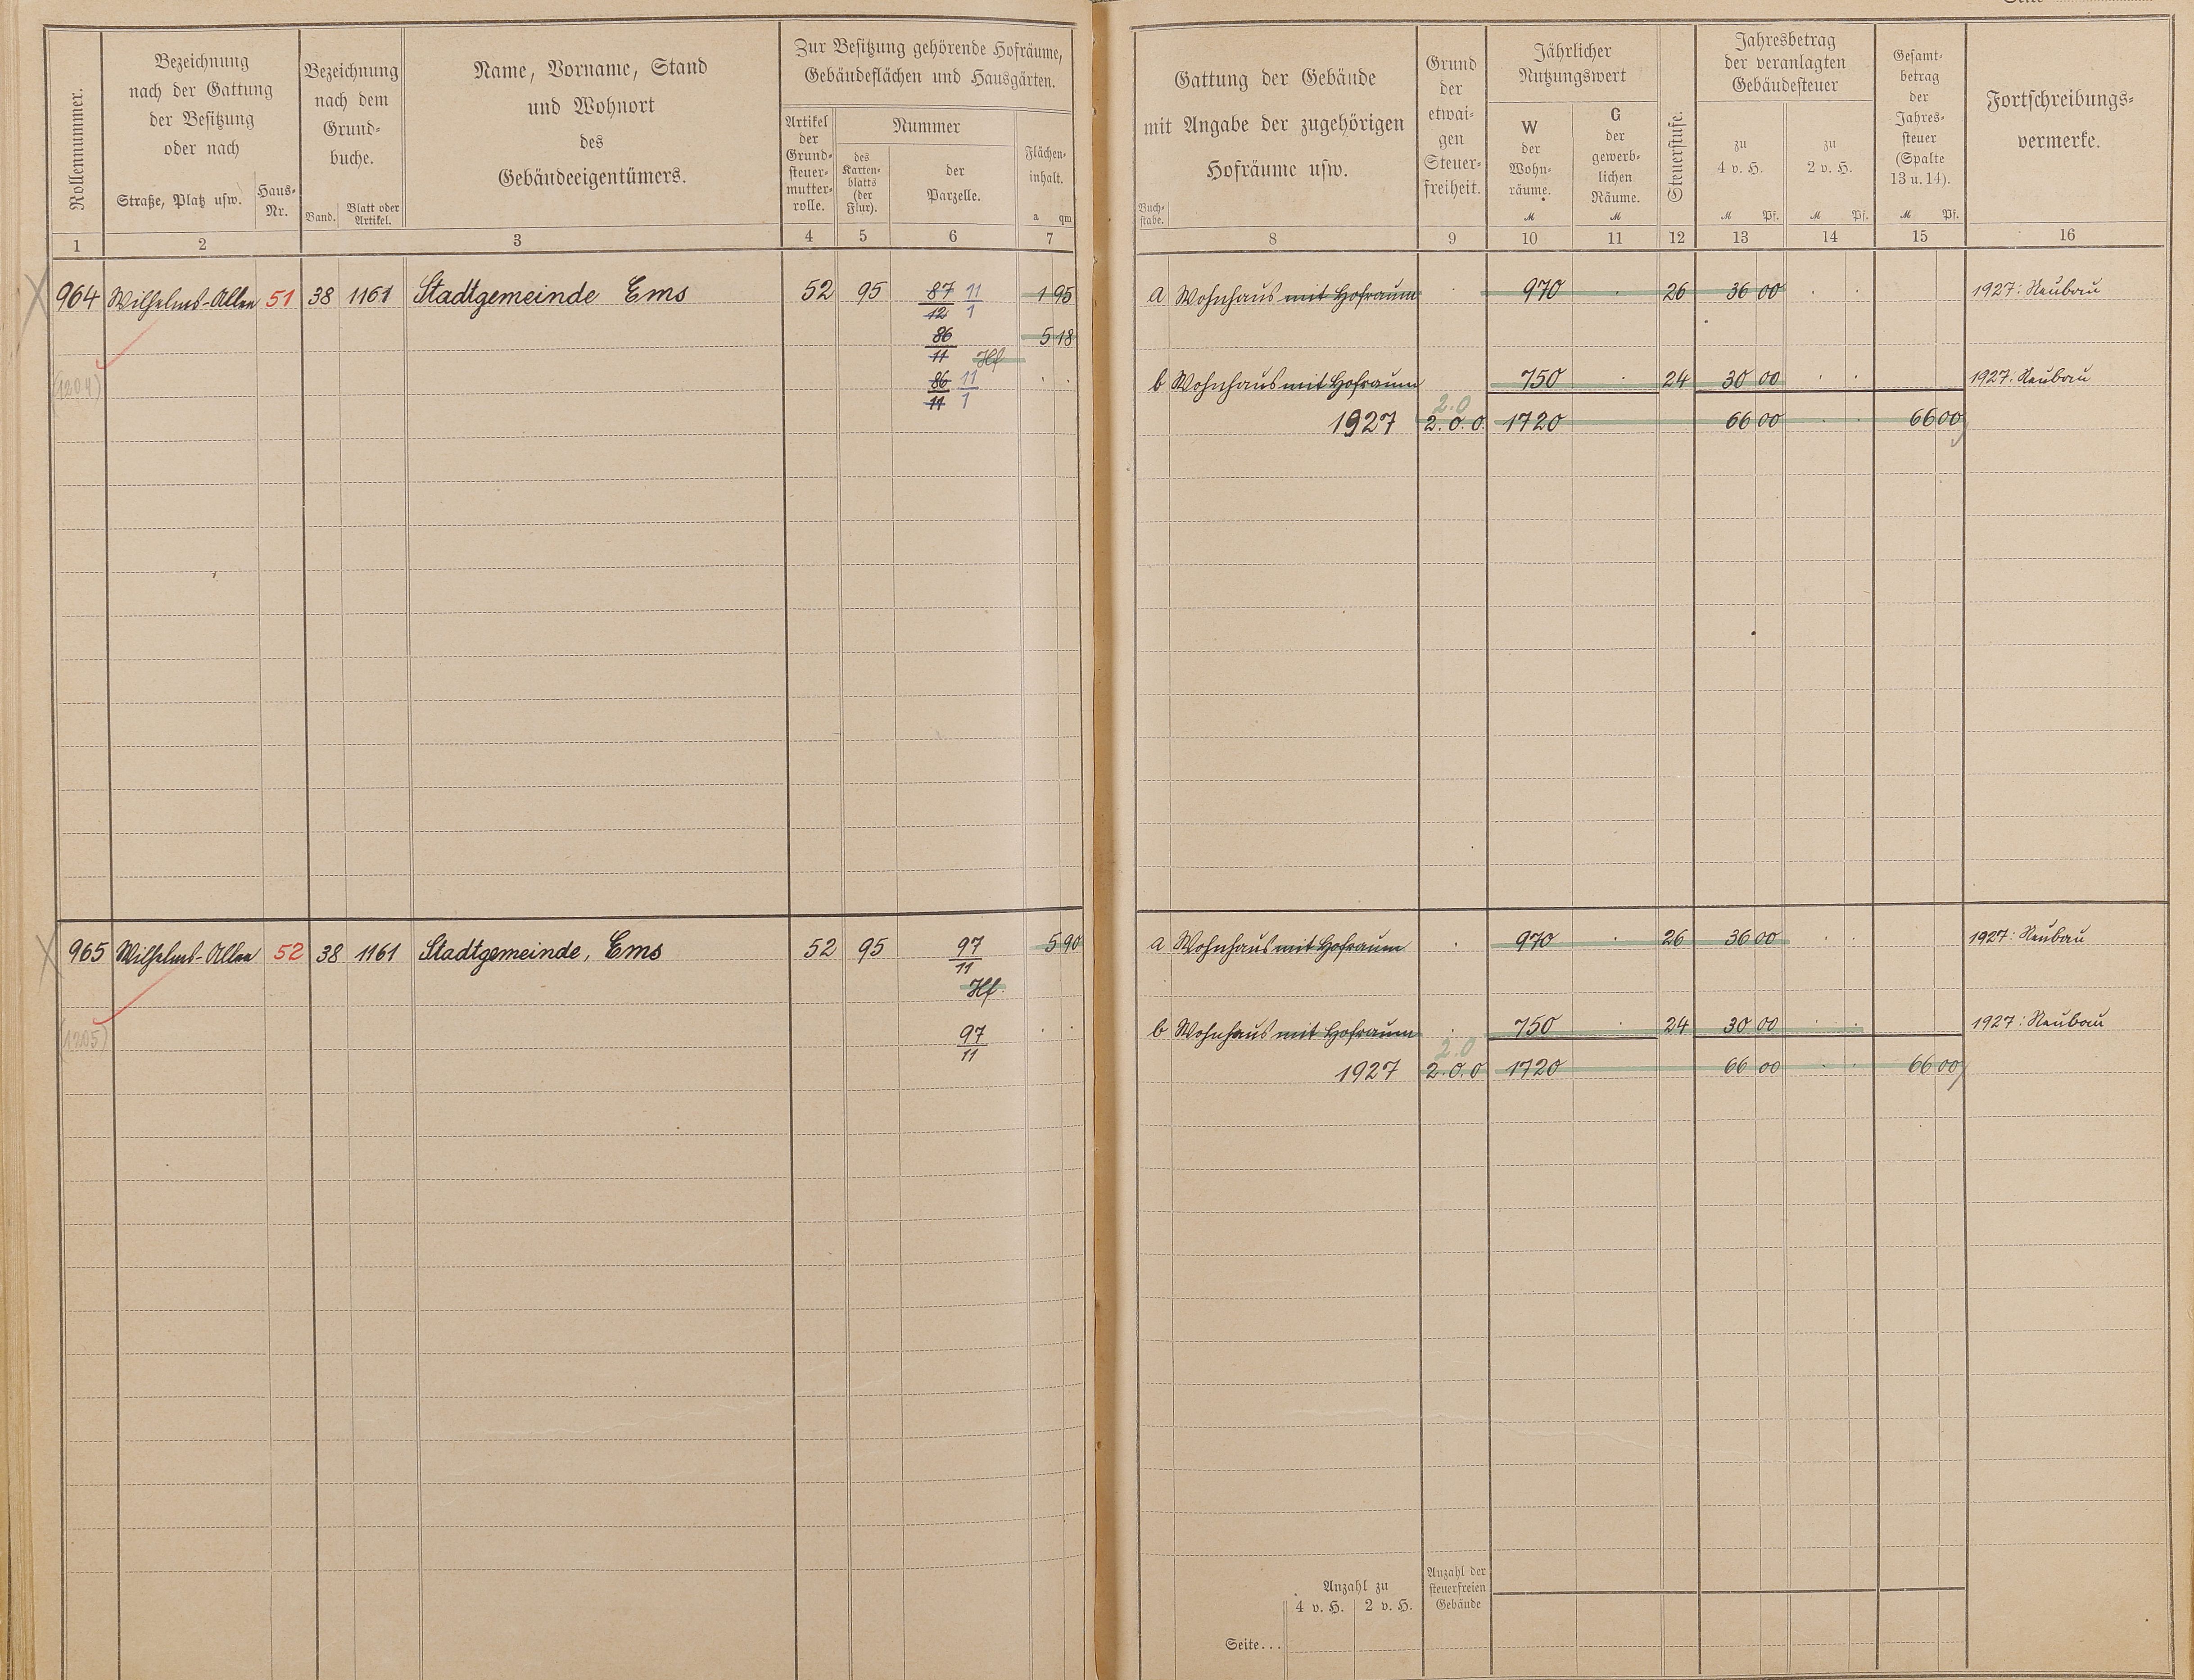 Rollennummer.
Bezeichnung
nach der Gattung
der Besitzung
oder nach
Straße, Platz usw.
Haus-
Nr.
Bezeichnung
nach dem
Grund-
buche.
Band.
Blatt oder
Artikel.
Name, Vorname, Stand
und Wohnort
des
Gebäudeeigentümers.
Zur Besitzung gehörende Hofräume,
Gebäudeflächen und Hausgärten.
Artikel
der
Grund-
steuer-
mutter-
rolle.
Nummer
des
Karten-
blatts
(der
Flur).
der
Parzelle.
Flächen-
inhalt.
a qm
1 2 3 4 5 6 7
964 Wilhelms-Allee 51 38 1161 Stadtgemeinde Ems 52 95 87 11 1 95
12 1
86 5 18
11 Hf
(1204) 86 11
11 1
965 Wilhelms-Allee 52 38 1161 Stadtgemeinde, Ems 52 95 97 5 90
11
Hf.
(1205) 97
11
Seite
Gattung der Gebäude
mit Angabe der zugehörigen
Hofräume usw.
Buch-
stabe.
Grund
der
etwai-
gen
Steuer-
freiheit.
Jährlicher
Nutzungswert
W
der
Wohn-
räume.
M
G
der
gewerb-
lichen
Räume.
M
Steuerstufe.
Jahresbetrag
der veranlagten
Gebäudesteuer
zu
4 v. H.
M Pf.
zu
2 v. H.
M Pf.
Gesamt-
betrag
der
Jahres-
steuer
(Spalte
13 u. 14).
M Pf.
Fortschreibungs-
vermerke.
8 9 10 11 12 13 14 15 16
a Wohnhaus mit Hofraum 970 26 36 00 1927: Neubau
b Wohnhaus mit Hofraum 750 24 30 00 1927: Neubau
2.0
1927 2.0.0 1720 66 00 66 00
a Wohnhaus mit Hofraum 970 26 36 00 1927: Neubau
b Wohnhaus mit Hofraum 750 24 30 00 1927: Neubau
2.0
1927 2.0.0 1720 66 00 66 00
Anzahl zu
4 v. H. 2 v. H.
Anzahl der
steuerfreien
Gebäude
Seite...